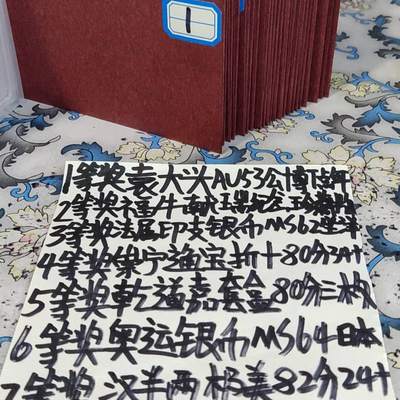 1
1等奖袁大头AU53公博
2等奖福牛献瑞纪
3等奖法属印支银币MS62坐洋
4等奖崇宁通宝折十80分
5等奖乾道嘉套盒80分三枚
6等奖奥运银币MS64日本
7等奖汉半两极美82分24+